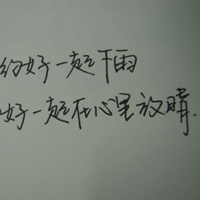 约好一起下雨
好一起在心里放晴.